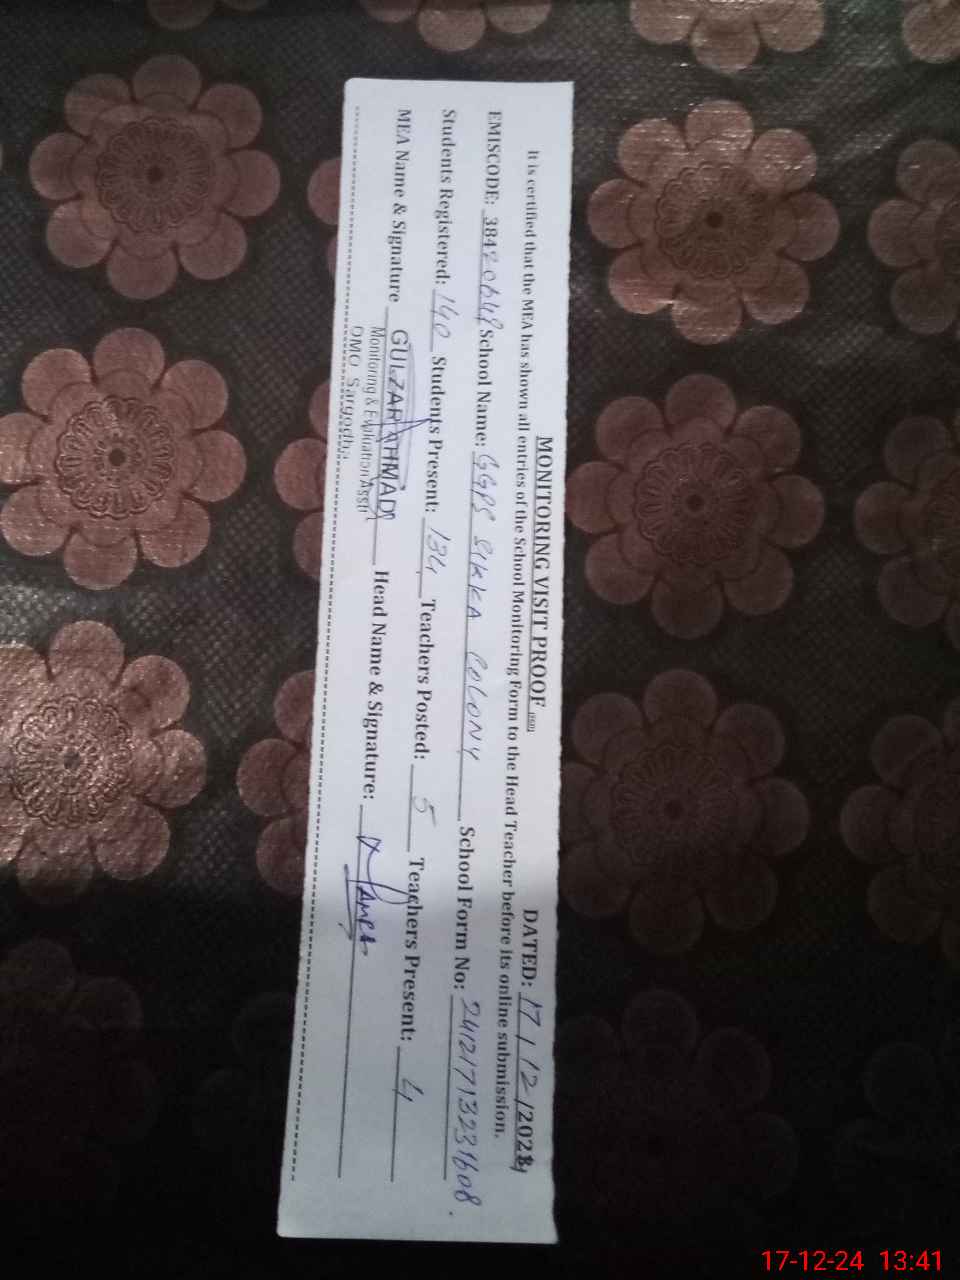 MONITORING VISIT PROOF DATED: 17/12/2024
It is certified that the MEA has shown all entries of the School Monitoring Form to the Head Teacher before its online submission.
EMISCODE: 38420649 School Name: GGPS SIKKA COLONY School Form No: 24121713231608.
Students Registered: 140 Students Present: 134 Teachers Posted: 5 Teachers Present: 4
MEA Name & Signature GULZAR AHMAD Head Name & Signature:
Monitoring & Evaluation Asstt
DMO Sargodha
17-12-24 13:41